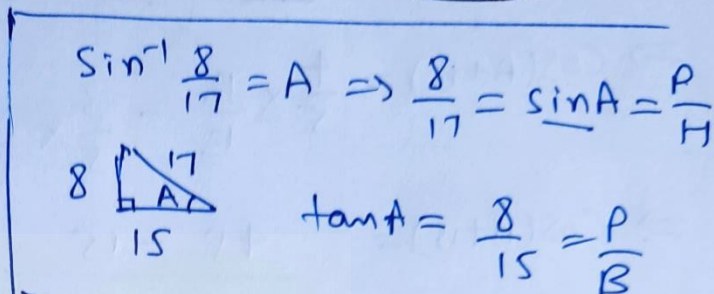 Sin⁻¹ 8/17 = A => 8/17 = sinA = P/H
8 17 A
15
tanA = 8/15 = P/B